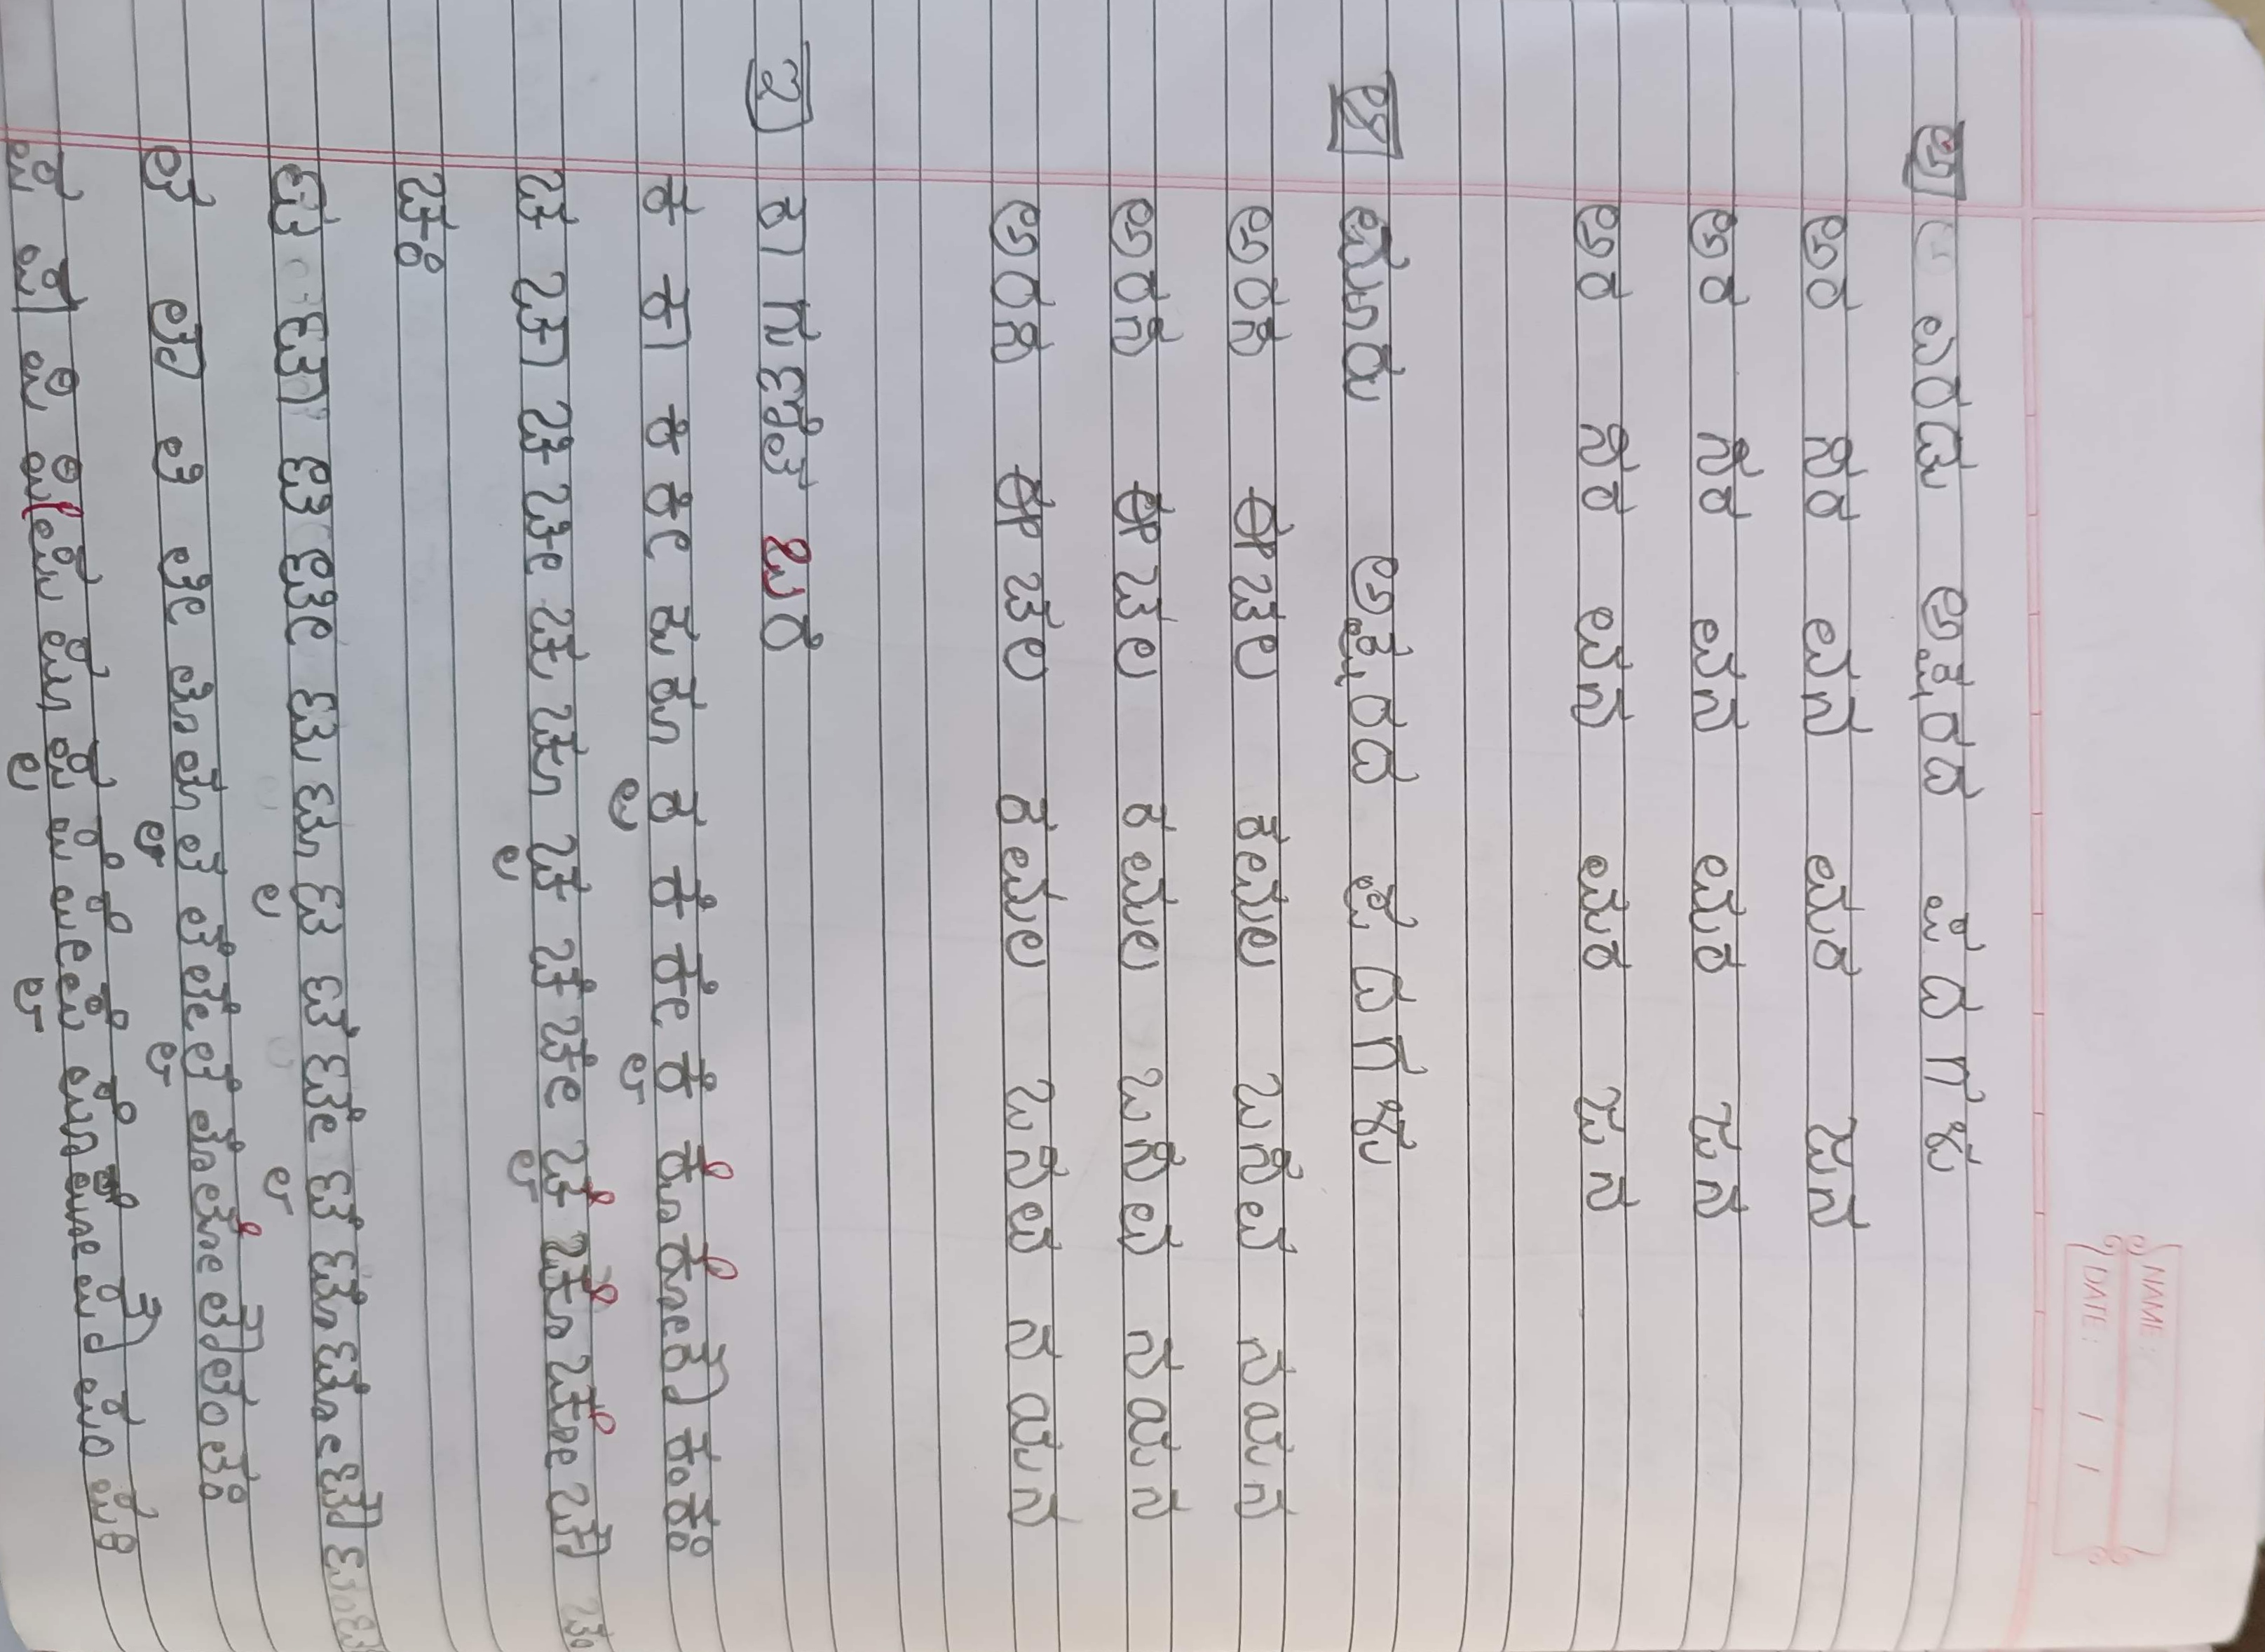 NAME:
DATE: / /
ಅ ಎರಡು ಅಕ್ಷರದ ಪದಗಳು
ಅರ ಸರ ವನ ಮರ ಜನ
ಅರ ಸರ ವನ ಮರ ಜನ
ಅರ ಸರ ವನ ಮರ ಜನ
ಆ ಮೂರು ಅಕ್ಷರದ ಪದಗಳು
ಅರಸ ಈಚಲ ಕಮಲ ಬಸವ ನಯನ
ಅರಸ ಈಚಲ ಕಮಲ ಬಸವ ನಯನ
ಅರಸ ಈಚಲ ಕಮಲ ಬಸವ ನಯನ
ಇ ಕಾಗುಣಿತ ಬರಿ
ಕ ಕಾ ಕಿ ಕೀ ಕು ಕೂ ಕೃ ಕೆ ಕೇ ಕೈ ಕೊ ಕೋ ಕೌ ಕಂ ಕಃ
ಚ ಚಾ ಚಿ ಚೀ ಚು ಚೂ ಚೃ ಚೆ ಚೇ ಚೈ ಚೊ ಚೋ ಚೌ ಚಂ
ಚಃ
ಟ ಟಾ ಟಿ ಟೀ ಟು ಟೂ ಟೃ ಟೆ ಟೇ ಟೈ ಟೊ ಟೋ ಟೌ ಟಂ ಟಃ
ತ ತಾ ತಿ ತೀ ತು ತೂ ತೃ ತೆ ತೇ ತೈ ತೊ ತೋ ತೌ ತಂ ತಃ
ಪ ಪಾ ಪಿ ಪೀ ಪು ಪೂ ಪೃ ಪೆ ಪೇ ಪೈ ಪೊ ಪೋ ಪೌ ಪಂ ಪಃ